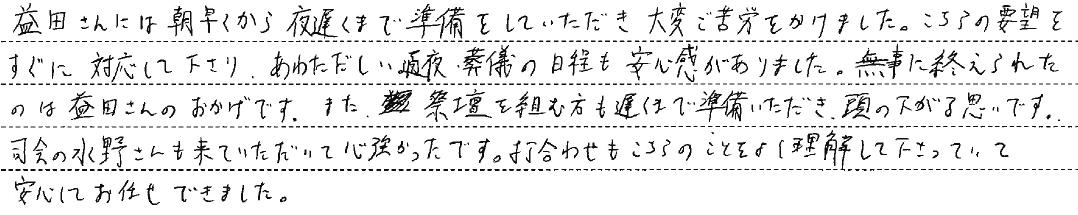 益田さんには朝早くから夜遅くまで準備をしていただき大変ご苦労をかけました。こちらの要望を
すぐに対応して下さり、あわただしい通夜・葬儀の日程も安心感がありました。無事に終えられた
のは益田さんのおかげです。また、祭壇を組む方も遅くまで準備いただき、頭の下がる思いです。
司会の水野さんも来ていただいて心強かったです。打合わせもこちらのことをよく理解して下さっていて
安心してお任せできました。